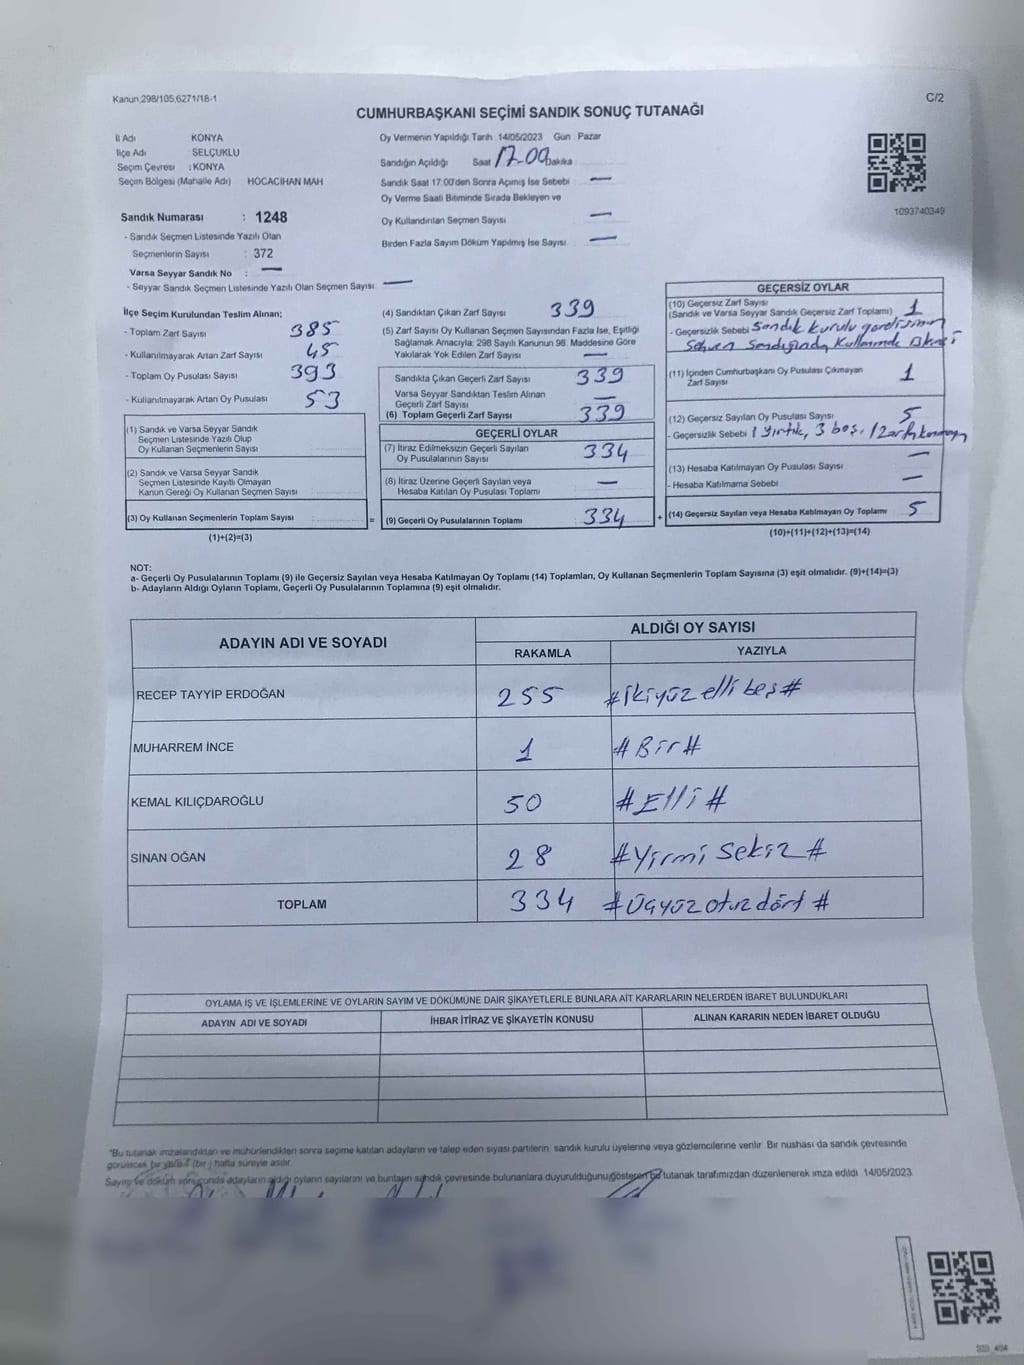 Kanun,298/105,6271/18-1
C/2
CUMHURBAŞKANI SEÇİMİ SANDIK SONUÇ TUTANAĞI
İl Adı KONYA
İlçe Adı SELÇUKLU
Seçim Çevresi : KONYA
Seçim Bölgesi (Mahalle Adı) HOCACİHAN MAH
Sandık Numarası : 1248
- Sandık Seçmen Listesinde Yazılı Olan
Seçmenlerin Sayısı : 372
Varsa Seyyar Sandık No : —
- Seyyar Sandık Seçmen Listesinde Yazılı Olan Seçmen Sayısı: —
Oy Vermenin Yapıldığı Tarih 14/05/2023 Gün Pazar
Sandığın Açıldığı Saat 17.00 Dakika
Sandık Saat 17:00'den Sonra Açımış İse Sebebi : —
Oy Verme Saati Bitiminde Sırada Bekleyen ve
Oy Kullandırılan Seçmen Sayısı —
Birden Fazla Sayım Döküm Yapılmış İse Sayısı —
1093740349
İlçe Seçim Kurulundan Teslim Alınan;
- Toplam Zarf Sayısı 385
- Kullanılmayarak Artan Zarf Sayısı 45
- Toplam Oy Pusulası Sayısı 393
- Kullanılmayarak Artan Oy Pusulası 53
(1) Sandık ve Varsa Seyyar Sandık
Seçmen Listesinde Yazılı Olup
Oy Kullanan Seçmenlerin Sayısı
(2) Sandık ve Varsa Seyyar Sandık
Seçmen Listesinde Kayıtlı Olmayan
Kanun Gereği Oy Kullanan Seçmen Sayısı
(3) Oy Kullanan Seçmenlerin Toplam Sayısı =
(1)+(2)=(3)
(4) Sandıktan Çıkan Zarf Sayısı 339
(5) Zarf Sayısı Oy Kullanan Seçmen Sayısından Fazla İse, Eşitliği
Sağlamak Amacıyla; 298 Sayılı Kanunun 98. Maddesine Göre
Yakılarak Yok Edilen Zarf Sayısı —
Sandıkta Çıkan Geçerli Zarf Sayısı 339
Varsa Seyyar Sandıktan Teslim Alınan
Geçerli Zarf Sayısı —
(6) Toplam Geçerli Zarf Sayısı 339
GEÇERLİ OYLAR
(7) İtiraz Edilmeksizin Geçerli Sayılan
Oy Pusulalarının Sayısı 334
(8) İtiraz Üzerine Geçerli Sayılan veya
Hesaba Katılan Oy Pusulası Toplamı —
(9) Geçerli Oy Pusulalarının Toplamı 334 +
GEÇERSİZ OYLAR
(10) Geçersiz Zarf Sayısı
(Sandık ve Varsa Seyyar Sandık Geçersiz Zarf Toplamı) 1
- Geçersizlik Sebebi Sandık kurulu
(11) İçinden Cumhurbaşkanı Oy Pusulası Çıkmayan
Zarf Sayısı 1
(12) Geçersiz Sayılan Oy Pusulası Sayısı 5
- Geçersizlik Sebebi 1 yırtık, 3 boş, 1
(13) Hesaba Katılmayan Oy Pusulası Sayısı —
- Hesaba Katılmama Sebebi —
(14) Geçersiz Sayılan veya Hesaba Katılmayan Oy Toplamı 5
(10)+(11)+(12)+(13)=(14)
NOT:
a- Geçerli Oy Pusulalarının Toplamı (9) ile Geçersiz Sayılan veya Hesaba Katılmayan Oy Toplamı (14) Toplamları, Oy Kullanan Seçmenlerin Toplam Sayısına (3) eşit olmalıdır. (9)+(14)=(3)
b- Adayların Aldığı Oyların Toplamı, Geçerli Oy Pusulalarının Toplamına (9) eşit olmalıdır.
ADAYIN ADI VE SOYADI
ALDIĞI OY SAYISI
RAKAMLA YAZIYLA
RECEP TAYYİP ERDOĞAN 255 #ikiyüz elli beş#
MUHARREM İNCE 1 #Bir#
KEMAL KILIÇDAROĞLU 50 #Elli#
SİNAN OĞAN 28 #Yirmi Sekiz#
TOPLAM 334 #Üçyüz otuz dört#
OYLAMA İŞ VE İŞLEMLERİNE VE OYLARIN SAYIM VE DÖKÜMÜNE DAİR ŞİKAYETLERLE BUNLARA AİT KARARLARIN NELERDEN İBARET BULUNDUKLARI
ADAYIN ADI VE SOYADI İHBAR İTİRAZ VE ŞİKAYETİN KONUSU ALINAN KARARIN NEDEN İBARET OLDUĞU
"Bu tutanak imzalandıktan ve mühürlendikten sonra seçime katılan adayların ve talep eden siyasi partilerin, sandık kurulu üyelerine veya gözlemcilerine verilir. Bir nüshası da sandık çevresinde
görülecek bir yere (bir) hafta süreyle asılır.
Sayım ve döküm sonucunda adayların aldığı oyların sayılarını ve bunların sandık çevresinde bulunanlara duyurulduğunu gösteren bu tutanak tarafımızdan düzenlenerek imza edildi. 14/05/2023